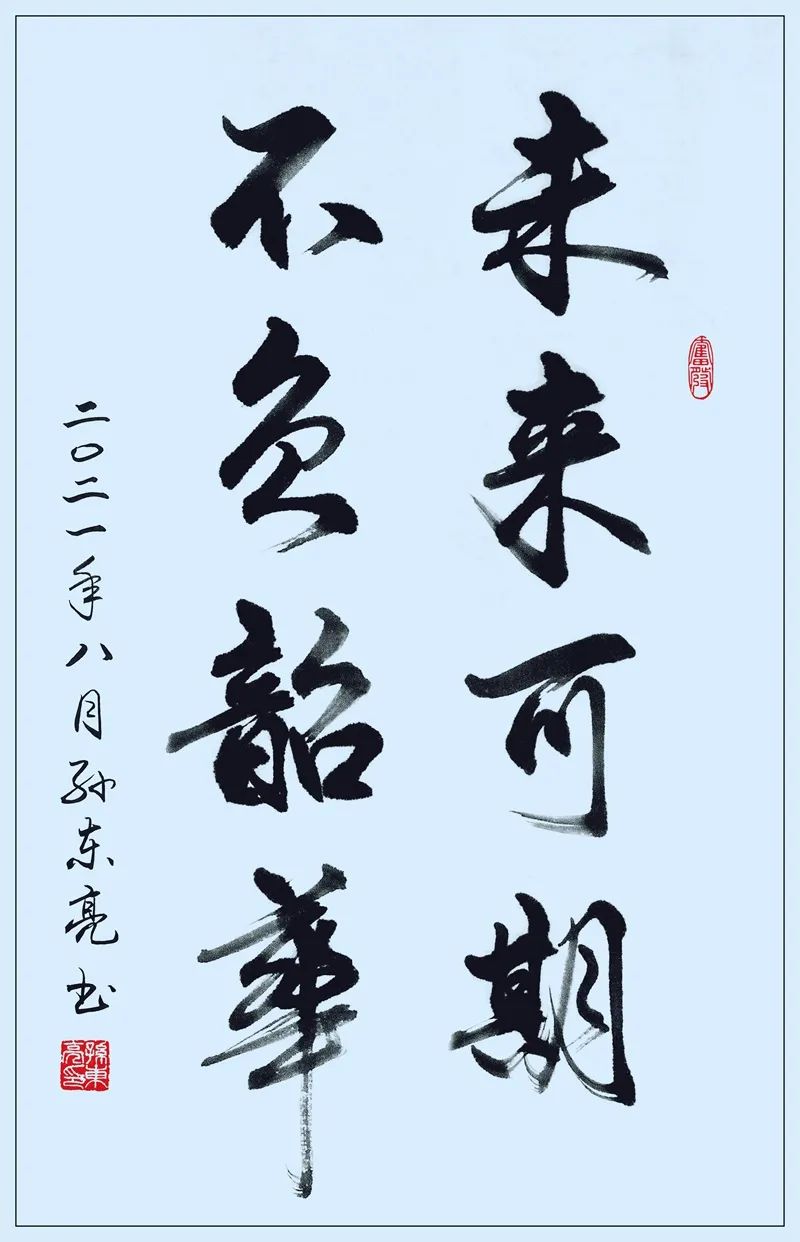 未来可期
不负韶華
二〇二一年八月孙东亮书
孫東亮印